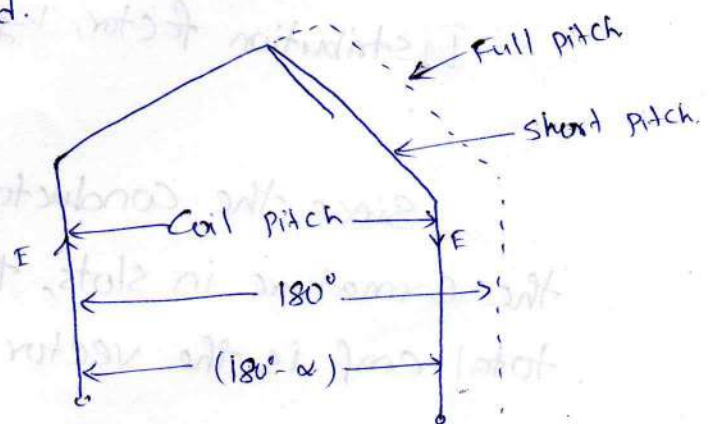 d.
Full pitch
Short pitch.
Coil pitch
E
E
180°
(180°-α)